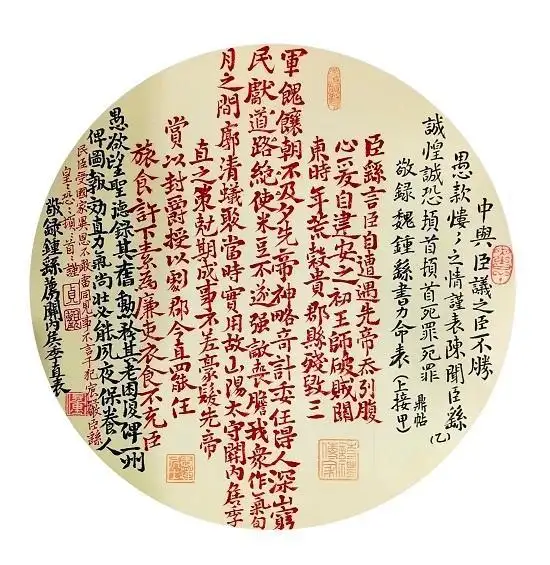 中與臣議之臣不勝
愚款慺〻之情謹表陳聞臣繇(乙)
誠惶誠恐頓首頓首死罪死罪
敬録魏鍾繇書力命表 鼎帖(上接甲)
臣繇言臣自遭遇先帝忝列腹
心爰自建安之初王師破賊關
東時年荒糓貴郡縣殘毀三
軍餽饟朝不及夕先帝神略奇計委任得人深山窮
民獻道路絶使米豆不遂强敵喪膽我衆作氣旬
月之間廓清蟻聚當時實用故山陽太守關内侯季
直之策尅期成事不差豪髮先帝
賞以封爵授以劇郡今直罷任
旅食許下素爲廉吏衣食不充臣
愚欲望聖德録其舊勳矜其老困復俾一州
俾圖報効直力氣尚壯必能夙夜保養人
民臣受國家異恩不敢雷同見事不言干犯宸嚴臣繇
皇〻恐〻頓首〻謹
敬録鍾繇薦關内侯季直表